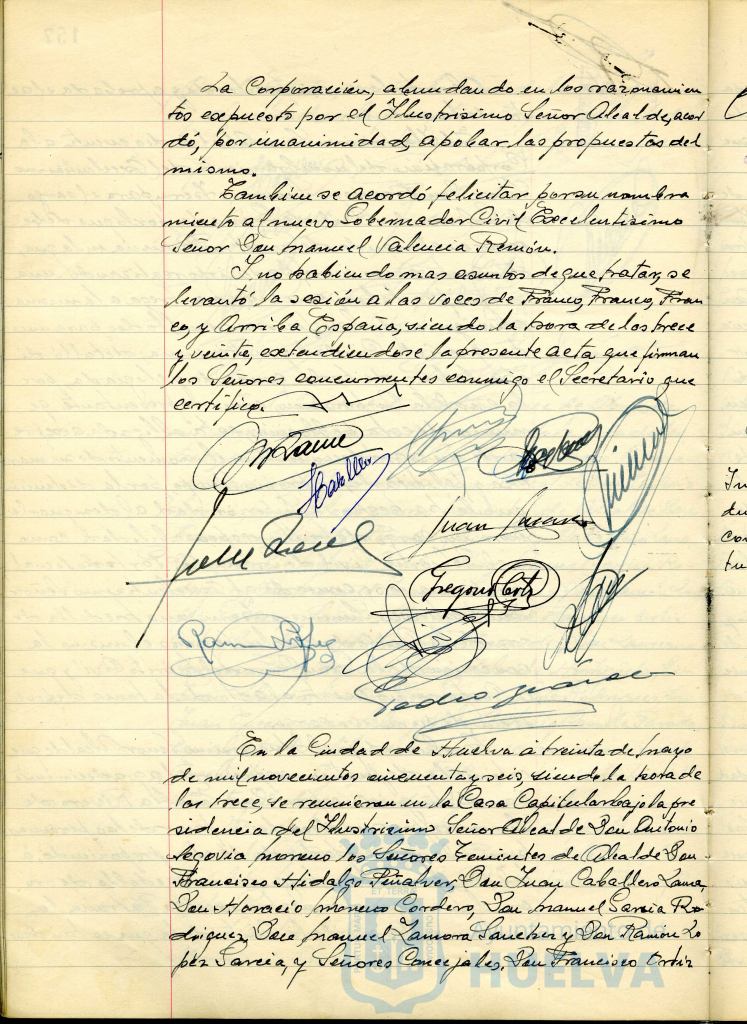 La Corporación, abundando en los razonamien
tos expuestos por el Ilustrísimo Señor Alcalde, acor
dó, por unanimidad, aprobar las propuestas del
mismo.
También se acordó felicitar por su nombra
miento al nuevo Gobernador Civil Excelentísimo
Señor Don Manuel Valencia Remón.
Y no habiendo mas asuntos de que tratar, se
levantó la sesión á las voces de Franco, Franco, Fran
co, y Arriba España, siendo la hora de las trece
y veinte, extendiéndose la presente acta que firman
los Señores concurrentes conmigo el Secretario que
certifico.
Juan
Gregorio
Ramon López
Pedro
En la Ciudad de Huelva á treinta de mayo
de mil novecientos cincuenta y seis, siendo la hora de
las trece, se reunieron en la Casa Capitular bajo la pre
sidencia del Ilustrísimo Señor Alcalde Don Antonio
Segovia Moreno los Señores Tenientes de Alcalde Don
Francisco Hidalgo Piñalver, Don Juan Caballero Lama,
Don Horacio Moreno Cordero, Don Manuel García Ro
dríguez, Don Manuel Zamora Sanchez y Don Ramon Lo
pez García, y Señores Concejales, Don Francisco Ortiz
HUELVA